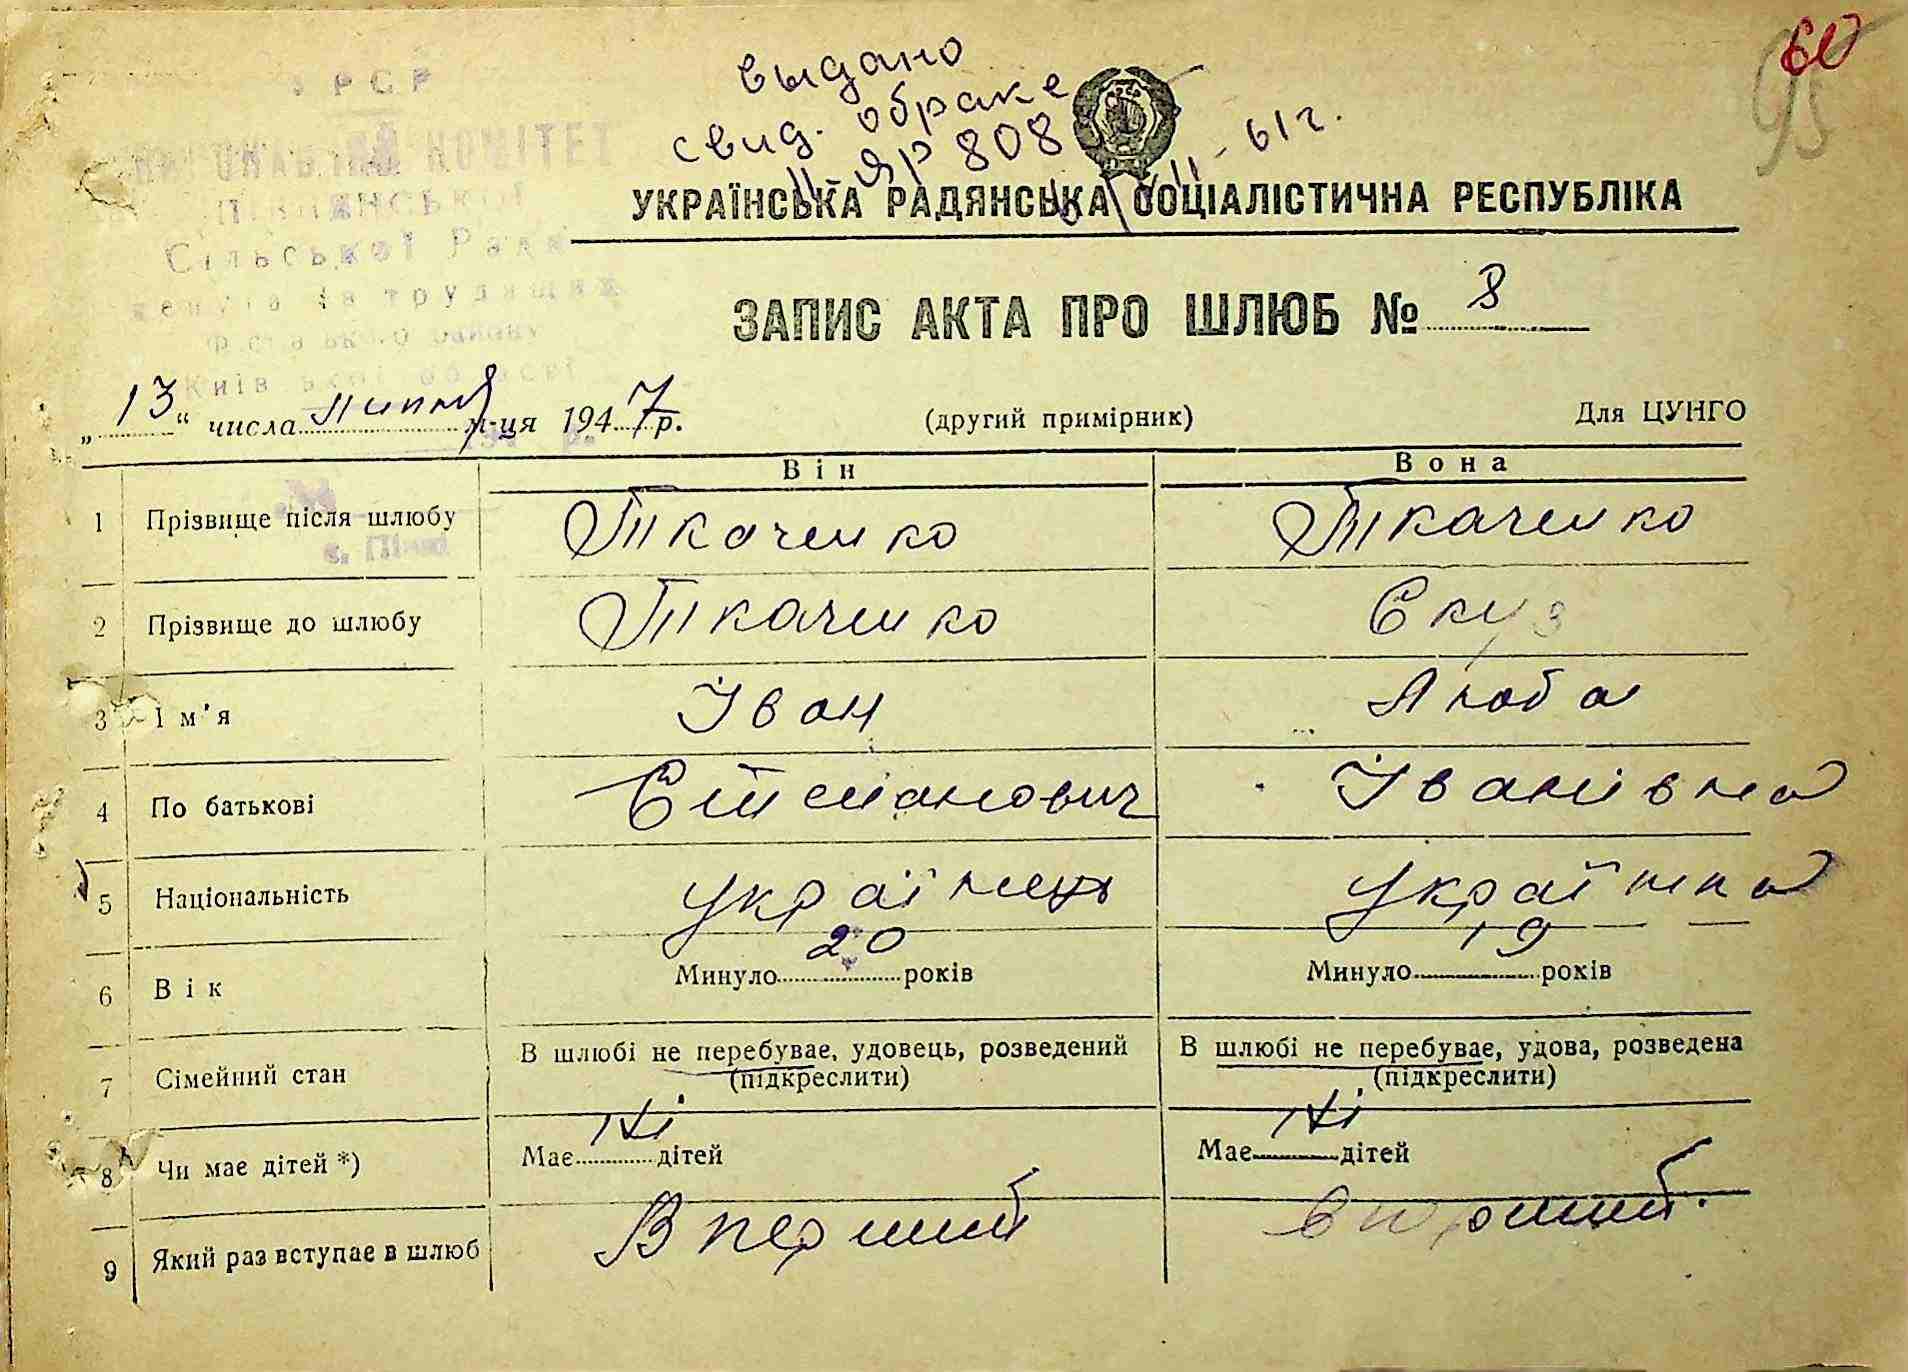 выдано
свид. о браке
ЯР 808
61 г.
60
95
УРСР
КОМІТЕТ
Сільської Ради
депутатів трудящих
УКРАЇНСЬКА РАДЯНСЬКА СОЦІАЛІСТИЧНА РЕСПУБЛІКА
ЗАПИС АКТА ПРО ШЛЮБ № 8
„13“ числа липня м-ця 1947 р. (другий примірник) Для ЦУНГО
Він Вона
1 Прізвище після шлюбу Ткаченко Ткаченко
2 Прізвище до шлюбу Ткаченко
3 Ім'я Іван Люба
4 По батькові Іванівна
5 Національність українець українка
6 Вік Минуло 20 років Минуло 19 років
7 Сімейний стан В шлюбі не перебуває, удовець, розведений В шлюбі не перебуває, удова, розведена
(підкреслити) (підкреслити)
8 Чи має дітей *) Має ні дітей Має ні дітей
9 Який раз вступає в шлюб Вперший вперший.